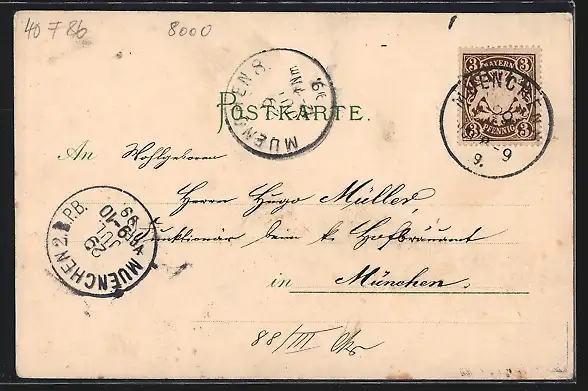 40 F 86 8000
BAYERN
3 3
3 3
PFENNIG
MUENCHEN
8-9
9.
MUENCHEN 8.
POSTKARTE.
An Wohlgeboren
Herrn Hugo Müller
Funktionär beim k. Hofbräuamt
in München.
MUENCHEN 2. B.P.B.
29
JUL
9-10
99
88/III